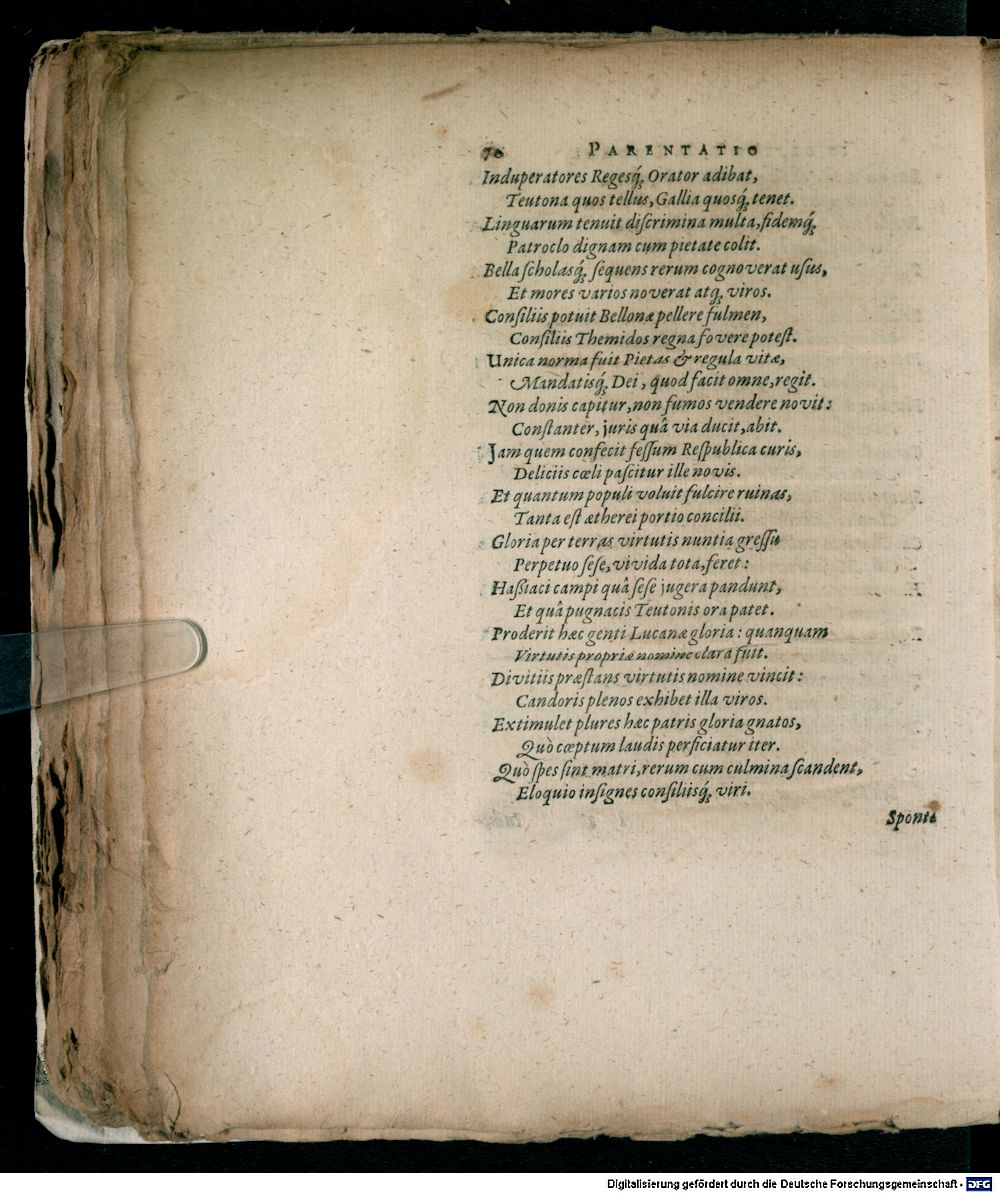 70 PARENTATIO
Induperatores Regesq́; Orator adibat,
Teutona quos tellus, Gallia quosq́; tenet.
Linguarum tenuit diſcrimina multa, fidemq́;
Patroclo dignam cum pietate colit.
Bella ſcholasq́; ſequens rerum cognoverat uſus,
Et mores varios noverat atq; viros.
Conſiliis potuit Bellonæ pellere fulmen,
Conſiliis Themidos regna fovere poteſt.
Unica norma fuit Pietas & regula vitæ,
Mandatisq́; Dei, quod facit omne, regit.
Non donis capitur, non fumos vendere novit:
Conſtanter, juris quâ via ducit, abit.
Jam quem confecit feſſum Reſpublica curis,
Deliciis cœli paſcitur ille novis.
Et quantum populi voluit fulcire ruinas,
Tanta eſt ætherei portio concilii.
Gloria per terras virtutis nuntia greſſu
Perpetuo ſeſe, vivida tota, feret:
Haßiaci campi quâ ſeſe jugera pandunt,
Et quâ pugnacis Teutonis ora patet.
Proderit hæc genti Lucanæ gloria: quanquam
Virtutis propriæ nomine clara fuit.
Divitiis præſtans virtutis nomine vincit:
Candoris plenos exhibet illa viros.
Extimulet plures hæc patris gloria gnatos,
Quò cœptum laudis perficiatur iter.
Quò ſpes ſint matri, rerum cum culmina ſcandent,
Eloquio inſignes conſiliisq́; viri.
Sponte
Digitalisierung gefördert durch die Deutsche Forschungsgemeinschaft - DFG